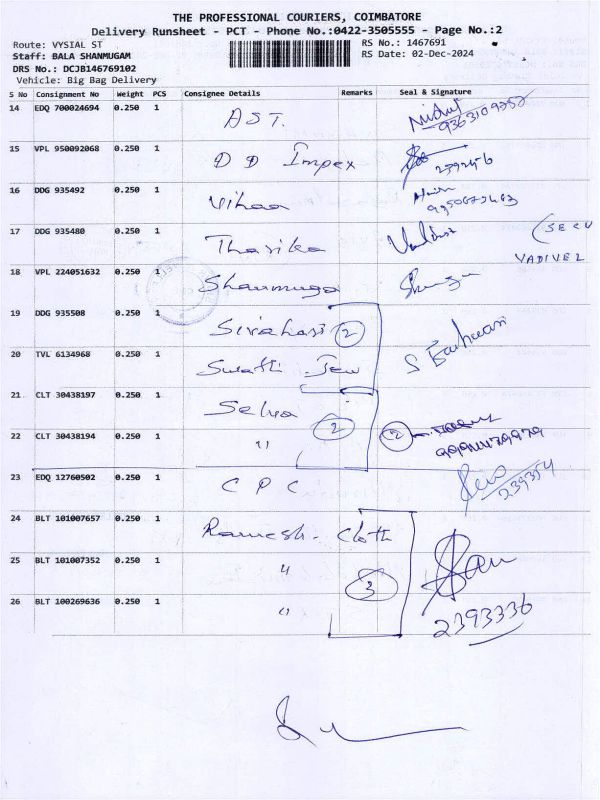 THE PROFESSIONAL COURIERS, COIMBATORE
Delivery Runsheet - PCT - Phone No.:0422-3505555 - Page No.:2
Route: VYSIAL ST RS No.: 1467691
Staff: BALA SHANMUGAM RS Date: 02-Dec-2024
DRS No.: DCJB146769102
Vehicle: Big Bag Delivery
S No Consignment No Weight PCS Consignee Details Remarks Seal & Signature
14 EDQ 700024694 0.250 1 AST.
15 VPL 950092068 0.250 1 DD Impex
16 DDG 935492 0.250 1 Vihaa
17 DDG 935480 0.250 1 Tharika
VADIVEL
18 VPL 224051632 0.250 1 Shanmuga
19 DDG 935508 0.250 1 Sivahari 2
20 TVL 6134968 0.250 1 Swathi Jew
21 CLT 30438197 0.250 1 Selva 2
22 CLT 30438194 0.250 1 " 2
23 EDQ 12760502 0.250 1 CPC
24 BLT 101007657 0.250 1 Ramesh. Cloth
25 BLT 101007352 0.250 1 " 3
26 BLT 100269636 0.250 1 " 2393336